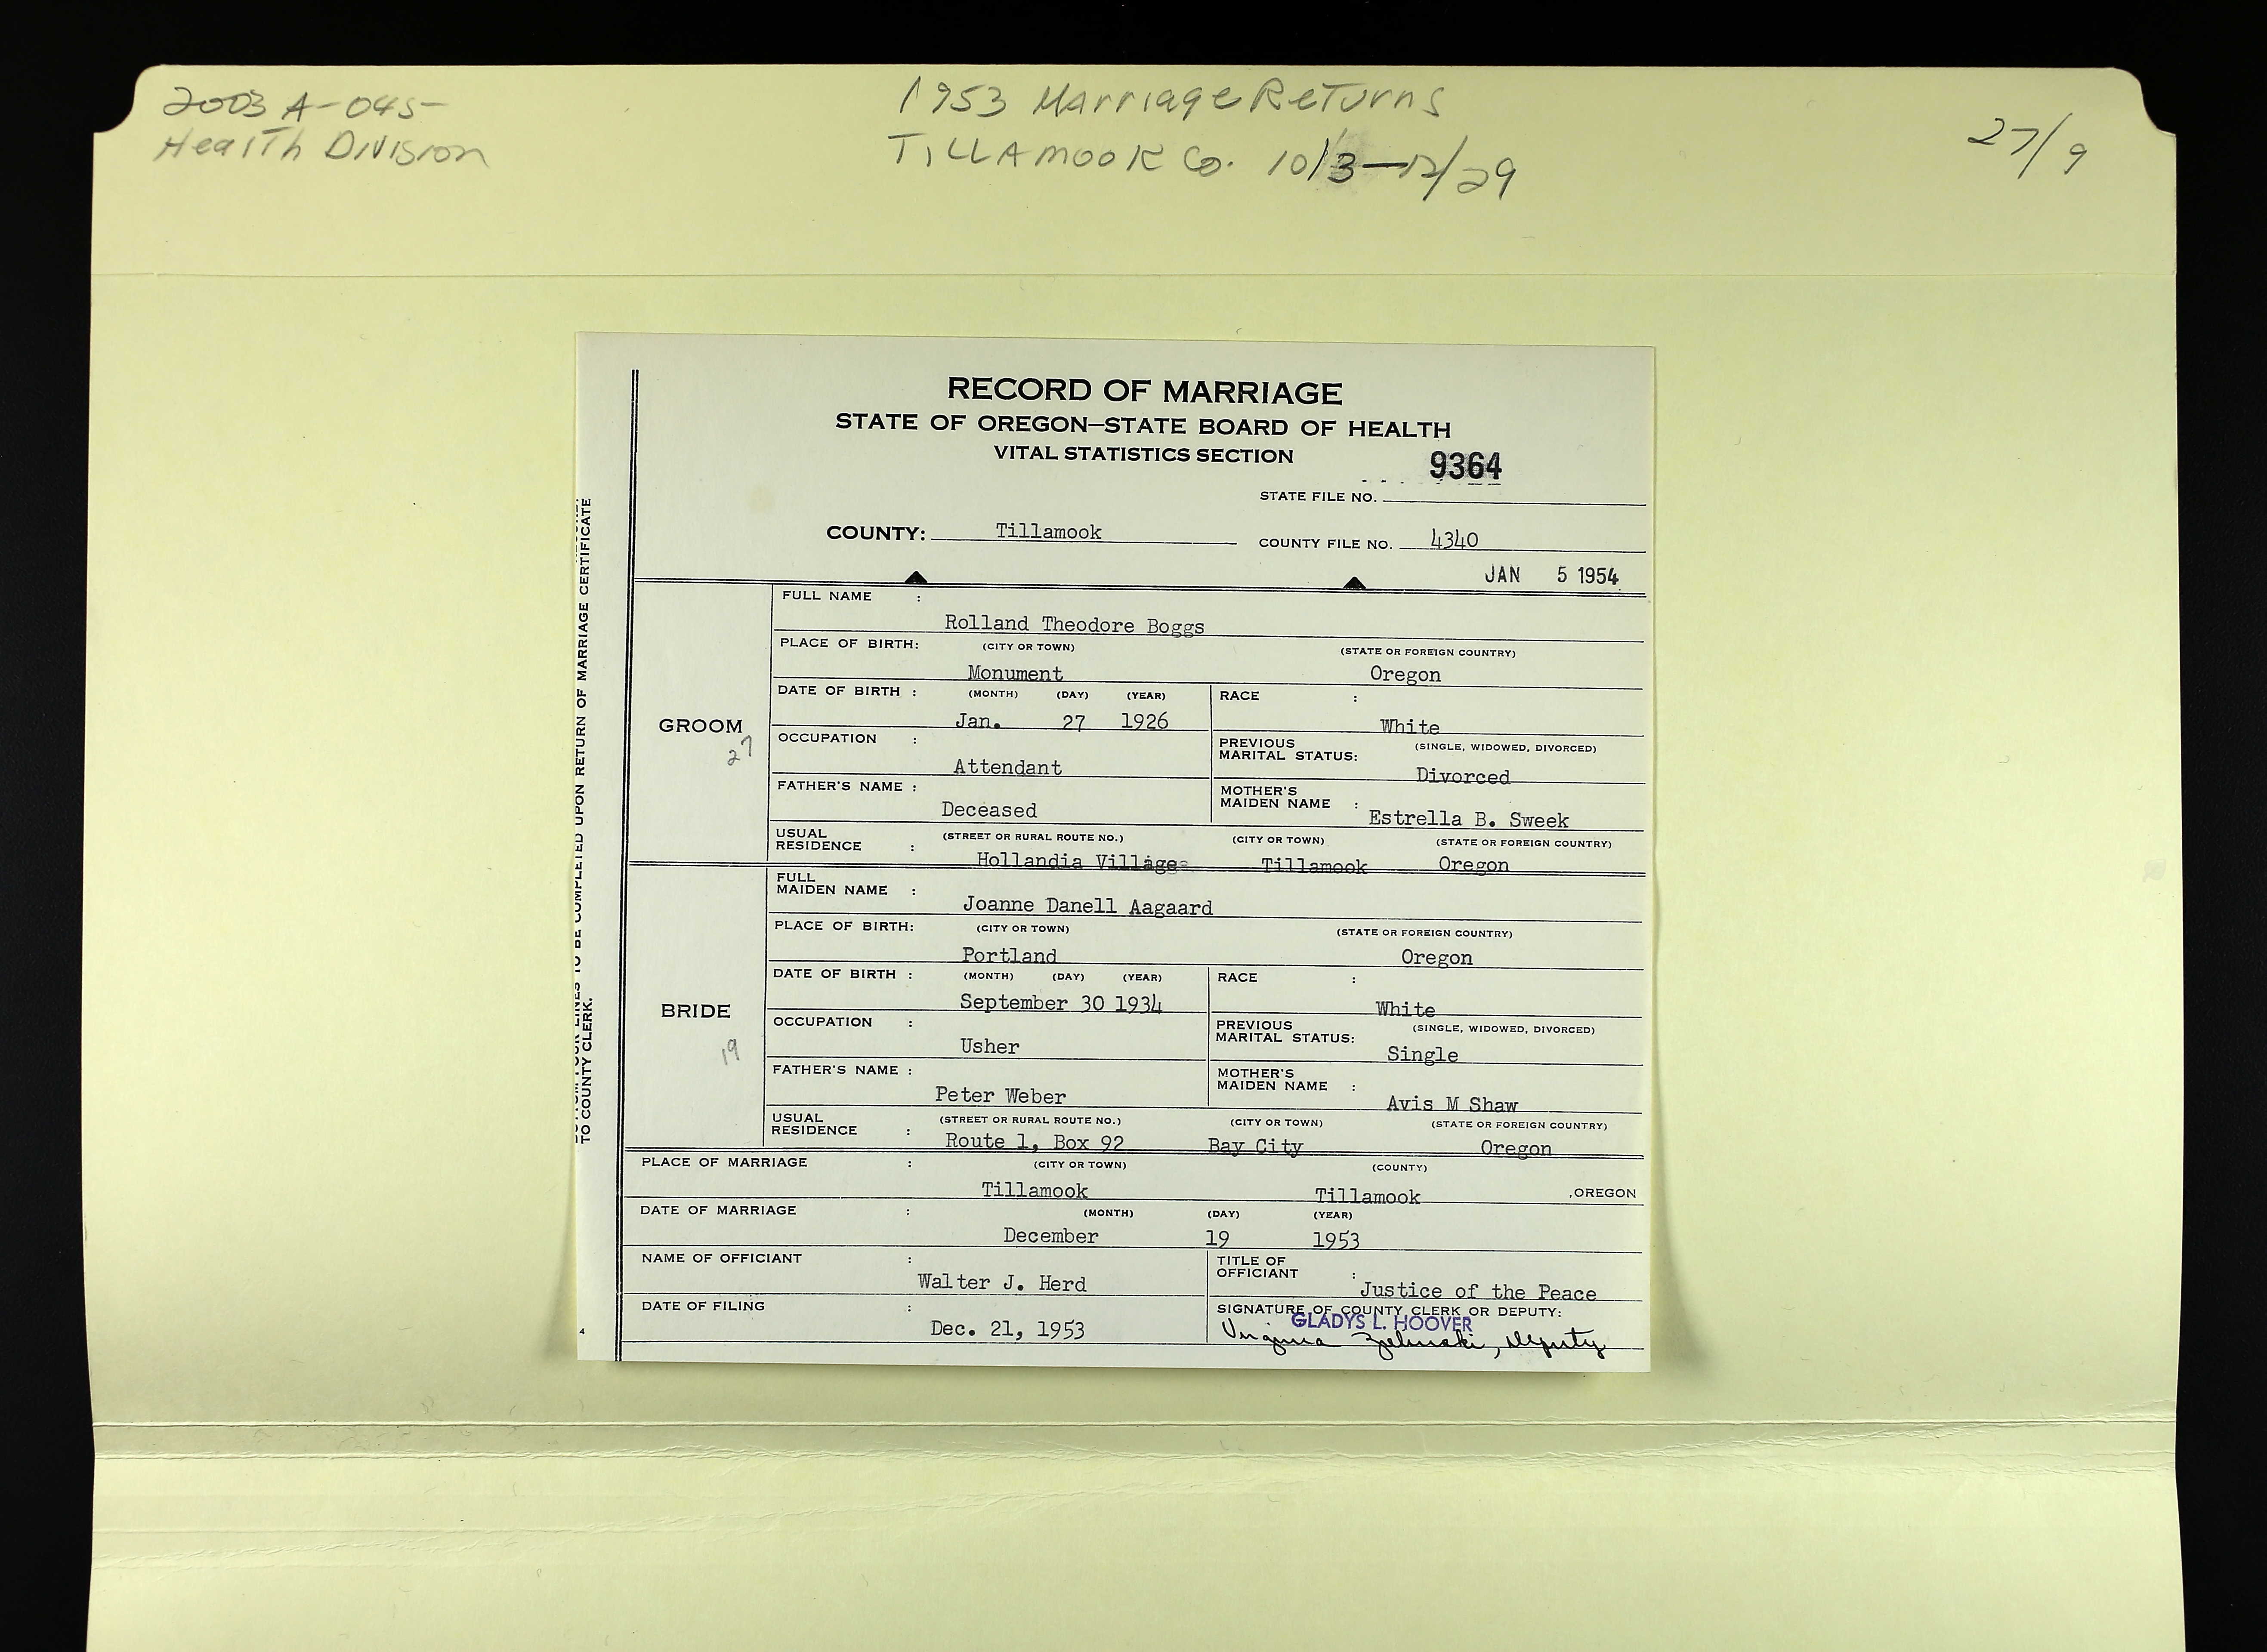 2003 A-045
Health Division
1953 Marriage Returns
TILLAMOOK Co. 10/3-12/29
27/9
RECORD OF MARRIAGE
STATE OF OREGON—STATE BOARD OF HEALTH
VITAL STATISTICS SECTION
9364
STATE FILE NO.
COUNTY: Tillamook COUNTY FILE NO. 4340
JAN 5 1954
TO BE COMPLETED UPON RETURN OF MARRIAGE CERTIFICATE
TO COUNTY CLERK.
GROOM
27
FULL NAME :
Rolland Theodore Boggs
PLACE OF BIRTH: (CITY OR TOWN) (STATE OR FOREIGN COUNTRY)
Monument Oregon
DATE OF BIRTH : (MONTH) (DAY) (YEAR) RACE :
Jan. 27 1926 White
OCCUPATION : PREVIOUS (SINGLE, WIDOWED, DIVORCED)
MARITAL STATUS:
Attendant Divorced
FATHER'S NAME : MOTHER'S
MAIDEN NAME :
Deceased Estrella B. Sweek
USUAL (STREET OR RURAL ROUTE NO.) (CITY OR TOWN) (STATE OR FOREIGN COUNTRY)
RESIDENCE :
Hollandia Village Tillamook Oregon
BRIDE
19
FULL
MAIDEN NAME :
Joanne Danell Aagaard
PLACE OF BIRTH: (CITY OR TOWN) (STATE OR FOREIGN COUNTRY)
Portland Oregon
DATE OF BIRTH : (MONTH) (DAY) (YEAR) RACE :
September 30 1934 White
OCCUPATION : PREVIOUS (SINGLE, WIDOWED, DIVORCED)
MARITAL STATUS:
Usher Single
FATHER'S NAME : MOTHER'S
MAIDEN NAME :
Peter Weber Avis M Shaw
USUAL (STREET OR RURAL ROUTE NO.) (CITY OR TOWN) (STATE OR FOREIGN COUNTRY)
RESIDENCE :
Route 1, Box 92 Bay City Oregon
PLACE OF MARRIAGE : (CITY OR TOWN) (COUNTY)
Tillamook Tillamook ,OREGON
DATE OF MARRIAGE : (MONTH) (DAY) (YEAR)
December 19 1953
NAME OF OFFICIANT : TITLE OF
OFFICIANT :
Walter J. Herd Justice of the Peace
DATE OF FILING : SIGNATURE OF COUNTY CLERK OR DEPUTY:
GLADYS L. HOOVER
Dec. 21, 1953 Virginia Zielinski, Deputy
4